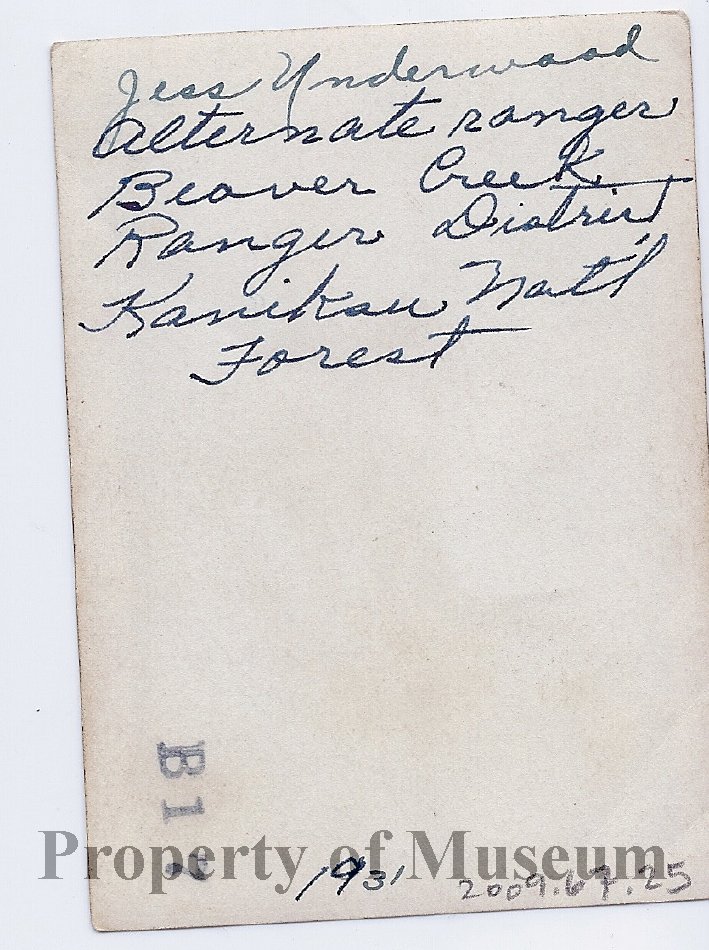 Jess Underwood
Alternate ranger
Beaver Creek
Ranger District
Kaniksu Nat'l
Forest
B17
Property of Museum
1931
2009.67.25